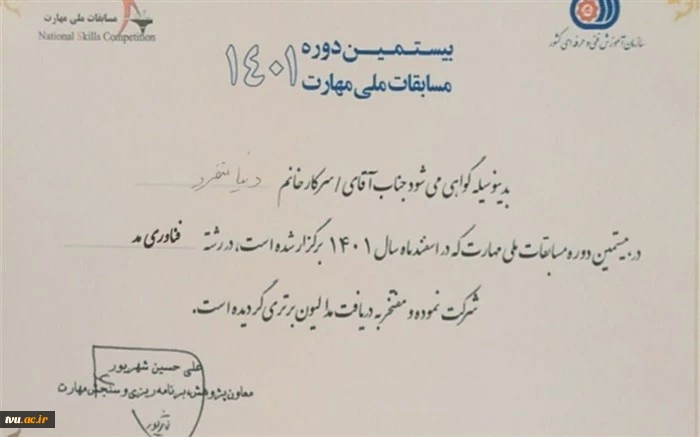 مسابقات ملی مهارت
National Skills Competition
سازمان آموزش فنی و حرفه‌ای کشور
بیستمین دوره
مسابقات ملی مهارت
۱۴۰۱
بدینوسیله گواهی می شود جناب آقای / سرکار خانم دنیا تنفرد
در بیستمین دوره مسابقات ملی مهارت که در اسفند ماه سال ۱۴۰۱ برگزار شده است، در رشته فناوری مد
شرکت نموده و مفتخر به دریافت مدالیون برتری گردیده است.
علی حسین شهریور
معاون پژوهش، برنامه ریزی و سنجش مهارت
tvu.ac.ir